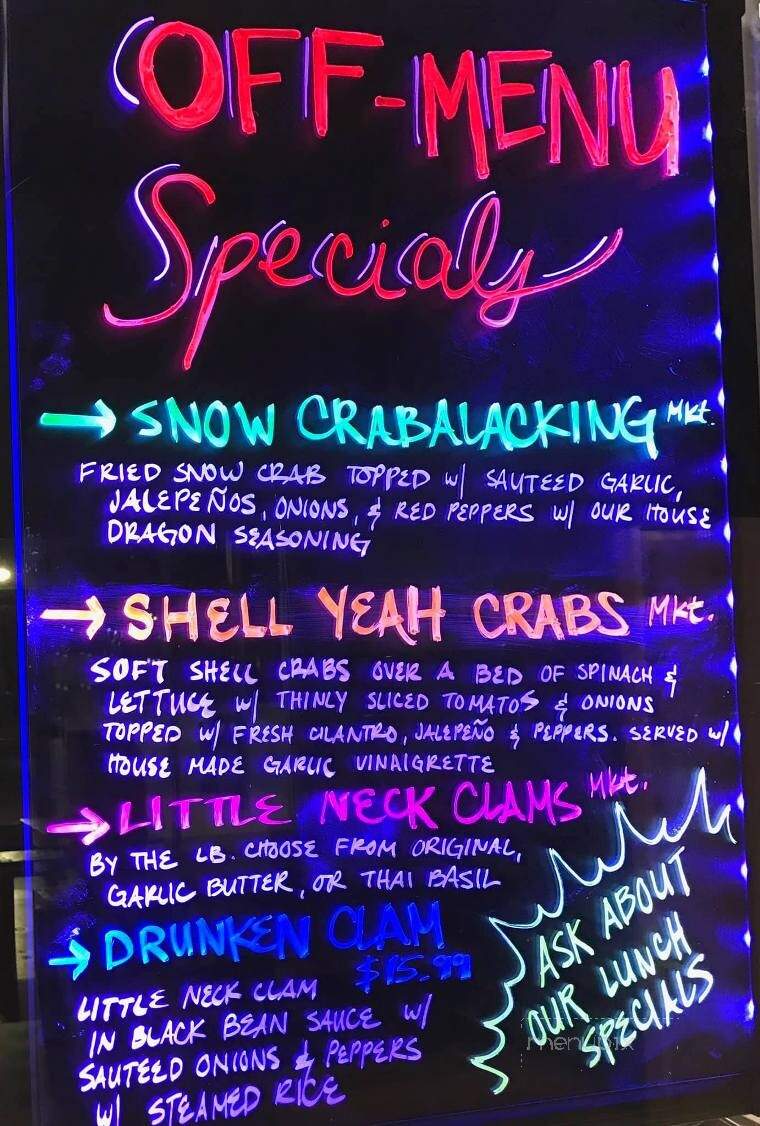 OFF-MENU
Specials
→ SNOW CRABALACKING Mkt.
FRIED SNOW CRAB TOPPED w/ SAUTEED GARLIC,
JALEPEÑOS, ONIONS, & RED PEPPERS w/ OUR HOUSE
DRAGON SEASONING
→ SHELL YEAH CRABS Mkt.
SOFT SHELL CRABS OVER A BED OF SPINACH &
LETTUCE w/ THINLY SLICED TOMATOS & ONIONS
TOPPED w/ FRESH CILANTRO, JALEPEÑO & PEPPERS. SERVED w/
HOUSE MADE GARLIC VINAIGRETTE
→ LITTLE NECK CLAMS Mkt.
BY THE LB. CHOOSE FROM ORIGINAL,
GARLIC BUTTER, OR THAI BASIL
→ DRUNKEN CLAM
$15.99
LITTLE NECK CLAM
IN BLACK BEAN SAUCE w/
SAUTEED ONIONS & PEPPERS
w/ STEAMED RICE
ASK ABOUT
OUR LUNCH
SPECIALS
menupix